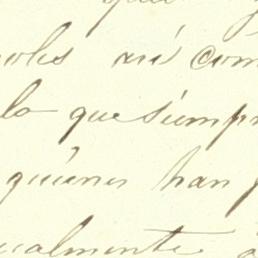 así com
lo que siempr
quienes han
ualmente a